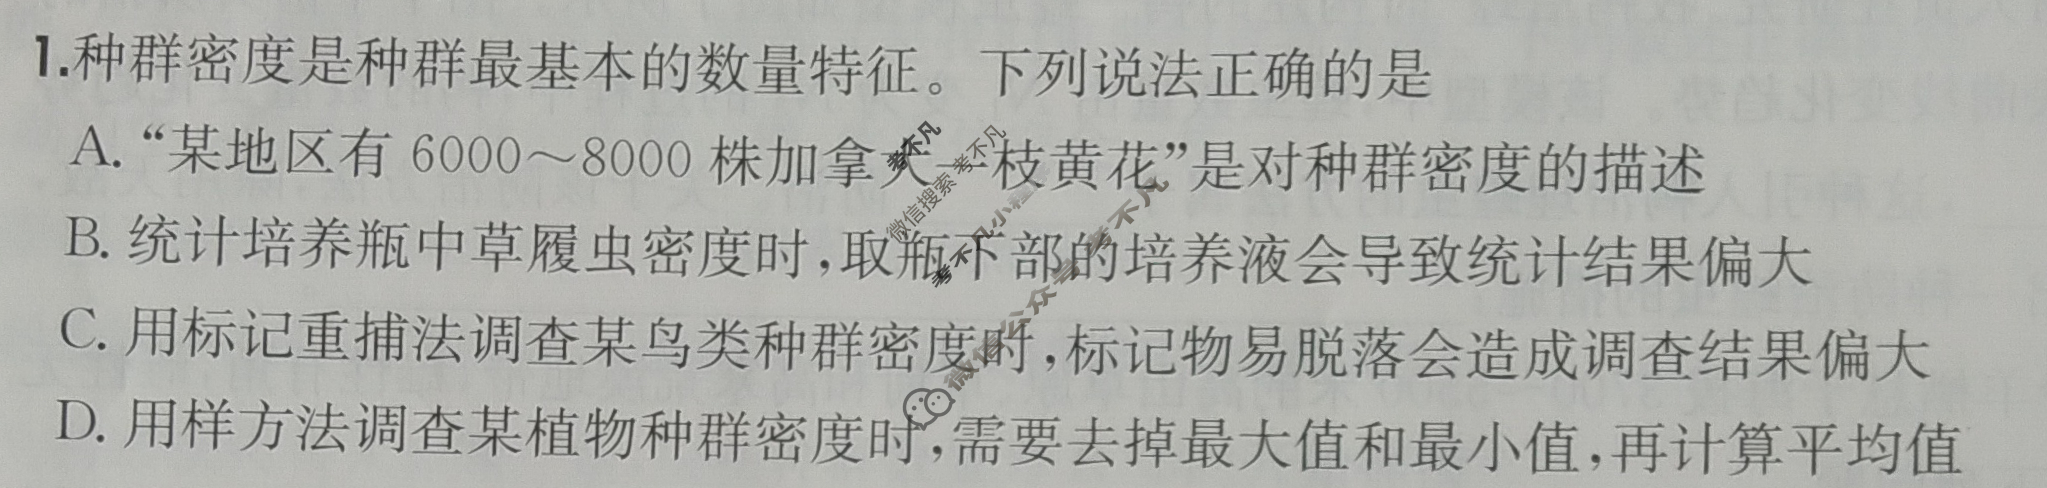 1.种群密度是种群最基本的数量特征。下列说法正确的是
A.“某地区有 6000～8000 株加拿大一枝黄花”是对种群密度的描述
B. 统计培养瓶中草履虫密度时,取瓶下部的培养液会导致统计结果偏大
C. 用标记重捕法调查某鸟类种群密度时,标记物易脱落会造成调查结果偏大
D. 用样方法调查某植物种群密度时,需要去掉最大值和最小值,再计算平均值
考不凡
微信搜索 考不凡
考不凡小程序
微信公众号 考不凡